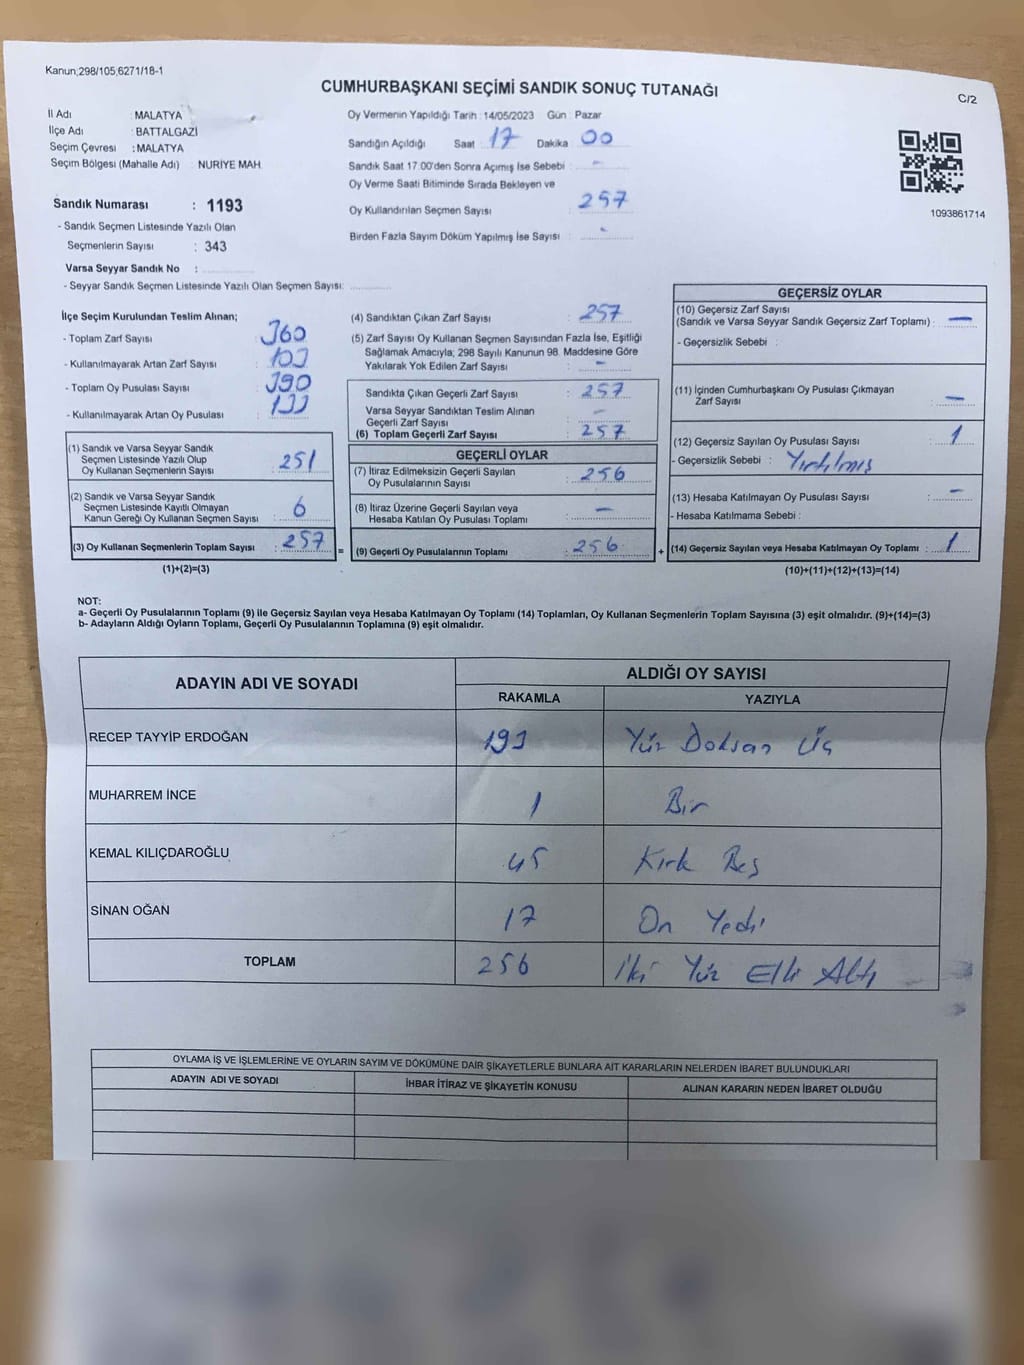 Kanun;298/105;6271/18-1
CUMHURBAŞKANI SEÇİMİ SANDIK SONUÇ TUTANAĞI
C/2
İl Adı : MALATYA
İlçe Adı : BATTALGAZİ
Seçim Çevresi : MALATYA
Seçim Bölgesi (Mahalle Adı) : NURİYE MAH.
Oy Vermenin Yapıldığı Tarih : 14/05/2023 Gün : Pazar
Sandığın Açıldığı Saat : 17 Dakika 00
Sandık Saat 17:00'den Sonra Açımış İse Sebebi : -
Oy Verme Saati Bitiminde Sırada Bekleyen ve
Oy Kullandırılan Seçmen Sayısı : 257
Birden Fazla Sayım Döküm Yapılmış İse Sayısı : -
1093861714
Sandık Numarası : 1193
- Sandık Seçmen Listesinde Yazılı Olan
Seçmenlerin Sayısı : 343
Varsa Seyyar Sandık No :
- Seyyar Sandık Seçmen Listesinde Yazılı Olan Seçmen Sayısı:
İlçe Seçim Kurulundan Teslim Alınan;
- Toplam Zarf Sayısı : 360
- Kullanılmayarak Artan Zarf Sayısı : 103
- Toplam Oy Pusulası Sayısı : 390
- Kullanılmayarak Artan Oy Pusulası : 133
(1) Sandık ve Varsa Seyyar Sandık
Seçmen Listesinde Yazılı Olup
Oy Kullanan Seçmenlerin Sayısı : 251
(2) Sandık ve Varsa Seyyar Sandık
Seçmen Listesinde Kayıtlı Olmayan
Kanun Gereği Oy Kullanan Seçmen Sayısı : 6
(3) Oy Kullanan Seçmenlerin Toplam Sayısı : 257
(1)+(2)=(3)
=
(4) Sandıktan Çıkan Zarf Sayısı : 257
(5) Zarf Sayısı Oy Kullanan Seçmen Sayısından Fazla İse, Eşitliği
Sağlamak Amacıyla; 298 Sayılı Kanunun 98. Maddesine Göre
Yakılarak Yok Edilen Zarf Sayısı : -
Sandıkta Çıkan Geçerli Zarf Sayısı : 257
Varsa Seyyar Sandıktan Teslim Alınan
Geçerli Zarf Sayısı : -
(6) Toplam Geçerli Zarf Sayısı : 257
GEÇERLİ OYLAR
(7) İtiraz Edilmeksizin Geçerli Sayılan
Oy Pusulalarının Sayısı : 256
(8) İtiraz Üzerine Geçerli Sayılan veya
Hesaba Katılan Oy Pusulası Toplamı : -
(9) Geçerli Oy Pusulalarının Toplamı : 256
+
GEÇERSİZ OYLAR
(10) Geçersiz Zarf Sayısı
(Sandık ve Varsa Seyyar Sandık Geçersiz Zarf Toplamı) : -
- Geçersizlik Sebebi :
(11) İçinden Cumhurbaşkanı Oy Pusulası Çıkmayan
Zarf Sayısı : -
(12) Geçersiz Sayılan Oy Pusulası Sayısı : 1
- Geçersizlik Sebebi : Yırtılmış
(13) Hesaba Katılmayan Oy Pusulası Sayısı : -
- Hesaba Katılmama Sebebi :
(14) Geçersiz Sayılan veya Hesaba Katılmayan Oy Toplamı : 1
(10)+(11)+(12)+(13)=(14)
NOT:
a- Geçerli Oy Pusulalarının Toplamı (9) ile Geçersiz Sayılan veya Hesaba Katılmayan Oy Toplamı (14) Toplamları, Oy Kullanan Seçmenlerin Toplam Sayısına (3) eşit olmalıdır. (9)+(14)=(3)
b- Adayların Aldığı Oyların Toplamı, Geçerli Oy Pusulalarının Toplamına (9) eşit olmalıdır.
ADAYIN ADI VE SOYADI
ALDIĞI OY SAYISI
RAKAMLA YAZIYLA
RECEP TAYYİP ERDOĞAN 193 Yüz Doksan Üç
MUHARREM İNCE 1 Bir
KEMAL KILIÇDAROĞLU 45 Kırk Beş
SİNAN OĞAN 17 On Yedi
TOPLAM 256 İki Yüz Elli Altı
OYLAMA İŞ VE İŞLEMLERİNE VE OYLARIN SAYIM VE DÖKÜMÜNE DAİR ŞİKAYETLERLE BUNLARA AİT KARARLARIN NELERDEN İBARET BULUNDUKLARI
ADAYIN ADI VE SOYADI İHBAR İTİRAZ VE ŞİKAYETİN KONUSU ALINAN KARARIN NEDEN İBARET OLDUĞU